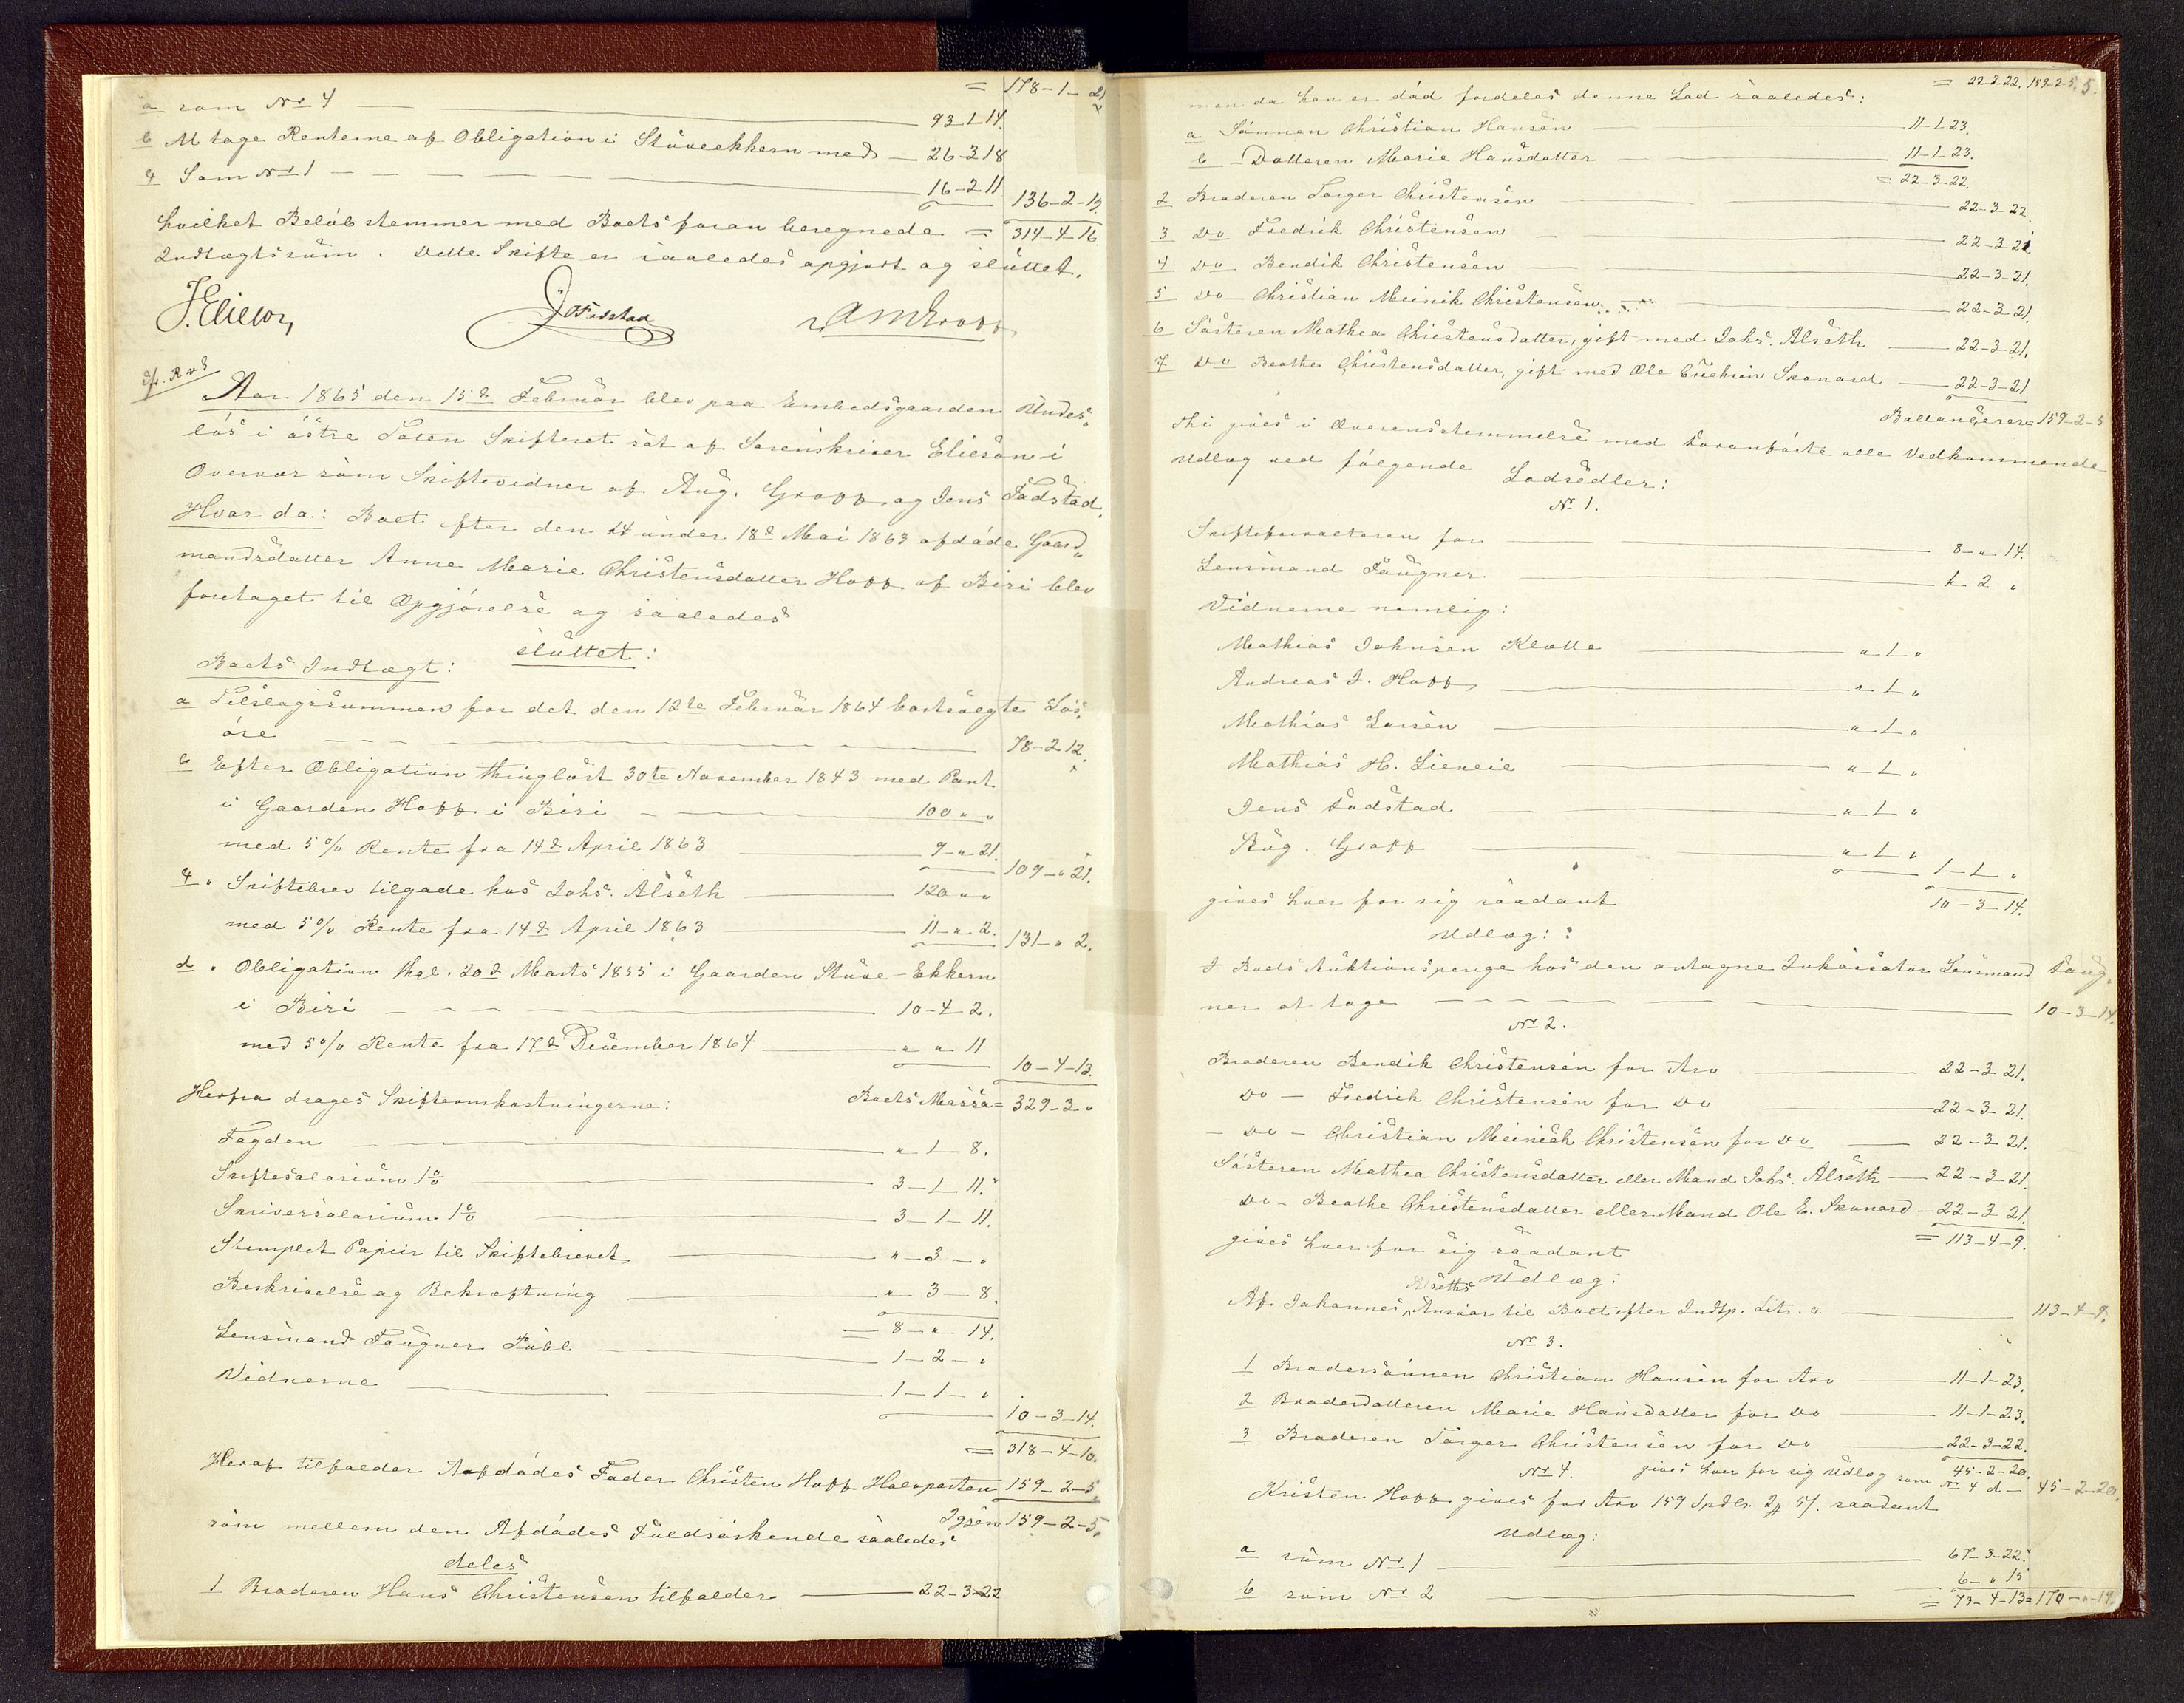 = 178-1-21
a som No 4 — 93-1-14.
b At tage Renterne af Obligation i Stuveekkern med — 26-3-18
4 Som No 1 — 16-2-11 136-2-19.
hvilket Beløb stemmer med Boets foran beregnede = 314-4-16
Indtægtssum. Dette Skifte er saaledes opgjort og sluttet.
J. Elieson J. Fodstad A Gropp
Aar 1865 den 15d Februar blev paa Embedsgaarden Undes„
løs i østre Toten Skifteret sat af Sorenskriver Elieson i
Overvær som Skiftevidner af Aug. Gropp og Jens Fodstad.
Hvor da: Boet efter den 14 under 18d Mai 1863 afdøde Gaard„
mandsdatter Anne Marie Christensdatter Hopp af Biri blev
foretaget til Opgjørelse og saaledes
sluttet:
Boets Indtægt:
a Tilslagssummen for det den 12te Februar 1864 bortsolgte Løs„
øre — 78-2-12.
b Efter Obligation thinglæst 30te November 1843 med Pant
i Gaarden Hopp i Biri — 100 „ „
med 5% Rente fra 14d April 1863 — 9-„-21. 109-„-21.
4. Skiftebrev tilgode hos Johs. Alseth — 120 „ „
med 5% Rente fra 14d April 1863 — 11-„-2. 131-„-2.
d. Obligation thgl. 20d Marts 1855 i Gaarden Stuve-Ekkern
i Biri — 10-4-2.
med 5% Rente fra 17d December 1864 — „ „ 11
10-4-13.
Herfra drages Skifteomkostningerne: Boets Massa = 329-3-„
Fogden — „-1-8.
Skiftesalarium 1% — 3-1-11.
Skriversalarium 1% — 3-1-11.
Stemplet Papiir til Skiftebrevet — „-3-„
Beskrivelse og Bekræftning — „-3-8.
= 8-„-14.
Lensmand Faugner — 1-2-„
Vidnerne — 1-1-„
10-3-14.
= 318-4-10.
Heraf tilfalder Afdødes Fader Christen Hopp Halvparten 159-2-5.
Igjen 159-2-5.
som mellem den Afdødes Fuldsøskende saaledes
deles
1 Broderen Hans Christensen tilfalder — 22-3-22
= 22-3-22. 159-2-5. 5.
men da han er død fordeles denne Lod saaledes:
a Sønnen Christian Hansen — 11-1-23.
b Datteren Marie Hansdatter — 11-1-23.
= 22-3-22.
2 Broderen Torger Christensen — 22-3-22
3 Do Fredrik Christensen — 22-3-21
4 Do Bendik Christensen — 22-3-21.
5 Do Christian Meinik Christensen — 22-3-21.
6 Søsteren Mathea Christensdatter, gift med Johs. Alseth — 22-3-21.
7 Do Beathe Christensdatter, gift med Ole Skonord — 22-3-21
Ballancerer = 159-2-5
Thi gives i Overensstemmelse med Foranførte alle Vedkommende
Udlæg ved følgende Lodsedler:
No 1.
Skifteforvalteren for — 8-„-14.
Lensmand Faugner — 1-2 „
Vidnerne nemlig:
Mathias Johnsen Klette — „-1-„
Andreas J. Hopp — „-1-„
Mathias Larsen — „-1-„
Mathias H. Lieneie — „-1-„
Jens Fodstad — „-1-„
Aug. Gropp — „-1-„ 1-1-„
gives hver for sig saadant 10-3-14.
Udlæg:
I Boets Auktionspenge hos den antagne Inkassator Lensmand Faug„
ner at tage — 10-3-14.
No 2.
Broderen Bendik Christensen for Arv — 22-3-21.
Do — Fredrik Christensen for Do — 22-3-21.
— Do — Christian Meinich Christensen for Do — 22-3-21.
Søsteren Mathea Christensdatter eller Mand Johs. Alseth — 22-3-21.
Do — Beathe Christensdatter eller Mand Ole E. Skonord — 22-3-21.
gives hver for sig saadant = 113-4-9.
Udlæg:
Af Johannes Alseths Ansvar til Boet efter Indtp. Litr. — 113-4-9.
No 3.
1 Brodersønnen Christian Hansen for Arv — 11-1-23.
2 Broderdatteren Marie Hansdatter for Do — 11-1-23.
3 Broderen Torger Christensen for Do — 22-3-22.
45-2-20.
gives hver for sig Udlæg som No 4 d — 45-2-20.
No 4.
Kristen Hopp gives for Arv 159 Spdlr. 2 5 saadant
Udlæg:
a som No 1 — 67-3-22.
b som No 2 — 6-„-15
= 73-4-13 = 170-„-19.